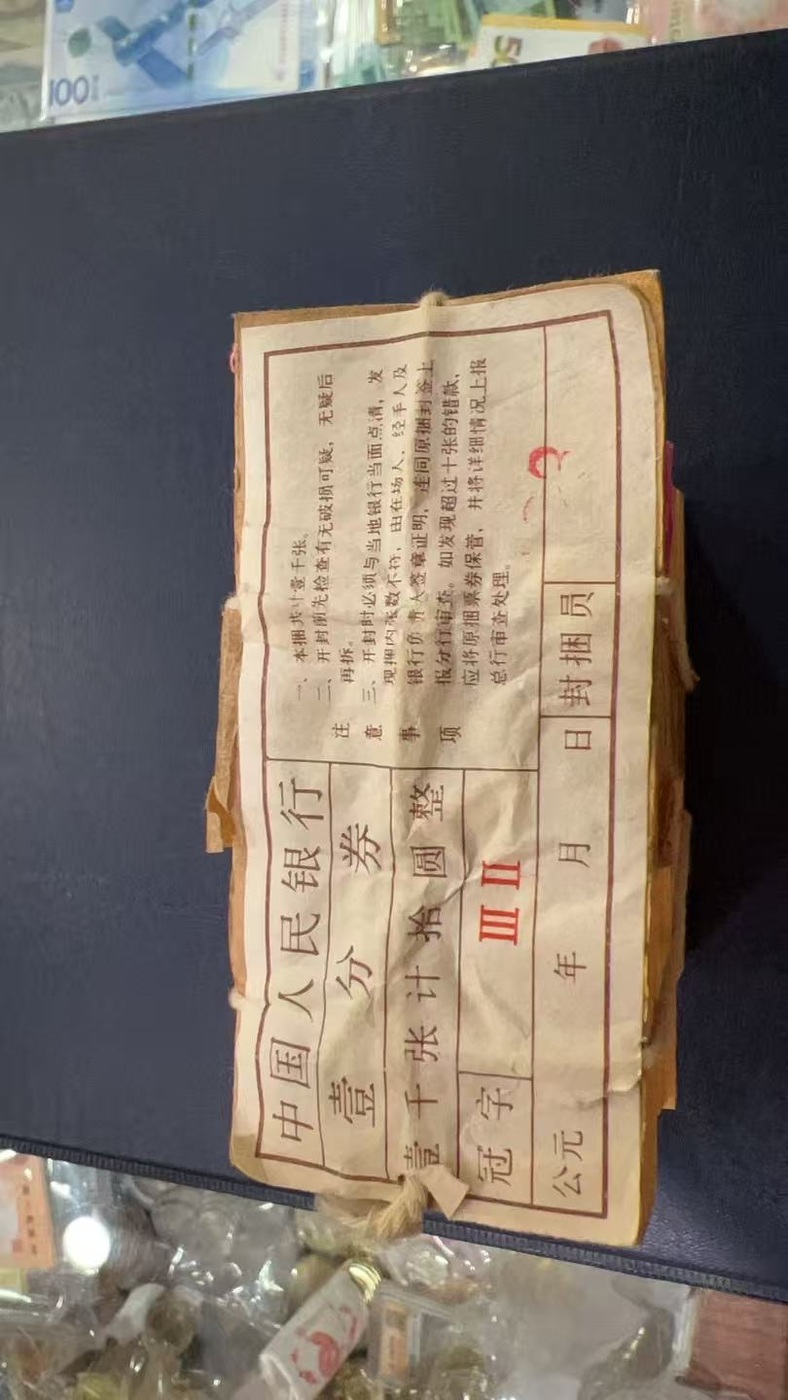 中国人民银行
壹分券
壹千张计拾圆整
冠字 III II
公元 年 月 日 封捆员
注意事项
一、本捆共计壹千张。
二、开封前先检查有无破损可疑，无疑后
再拆。
三、开封时必须与当地银行当面点清，发
现捆内张数不符，由在场人、经手人及
银行负责人签章证明，连同原捆封签上
报分行审查。如发现超过十张的错款，
应将原捆票券保管，并将详细情况上报
总行审查处理。
100
50